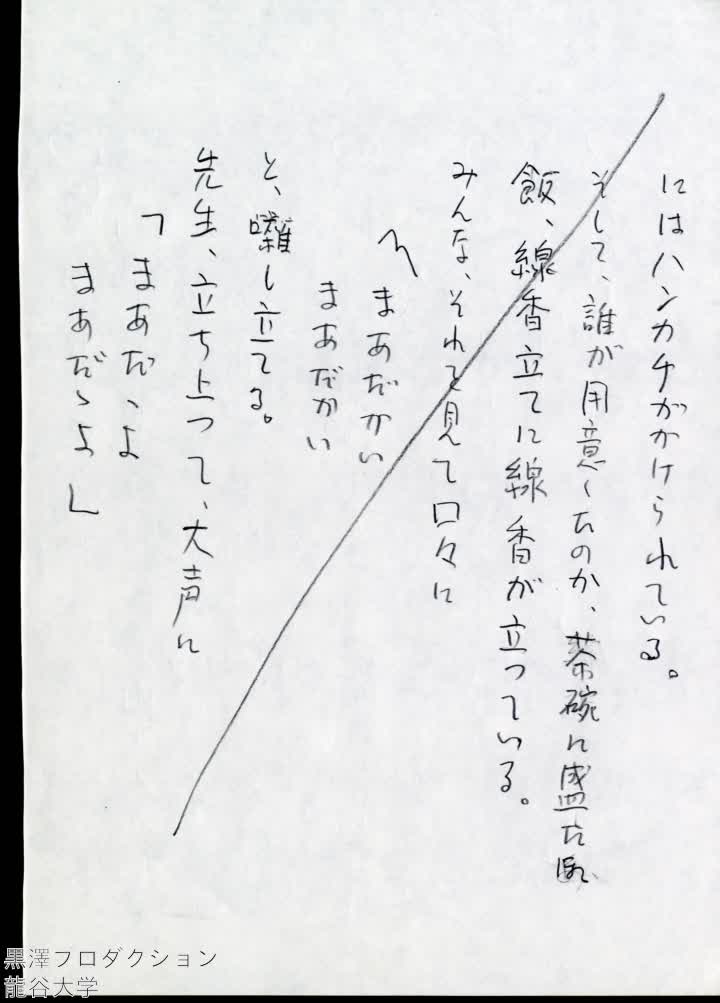 にはハンカチがかけられている。
そして、誰が用意したのか、茶碗に盛た
飯、線香立てに線香が立っている。
みんな、それを見て口々に
〽まあだかい
まあだかい
と、囃し立てる。
先生、立ち上つて、大声に
「まあだゝよ
まあだゝよ」
黒澤プロダクション
龍谷大学